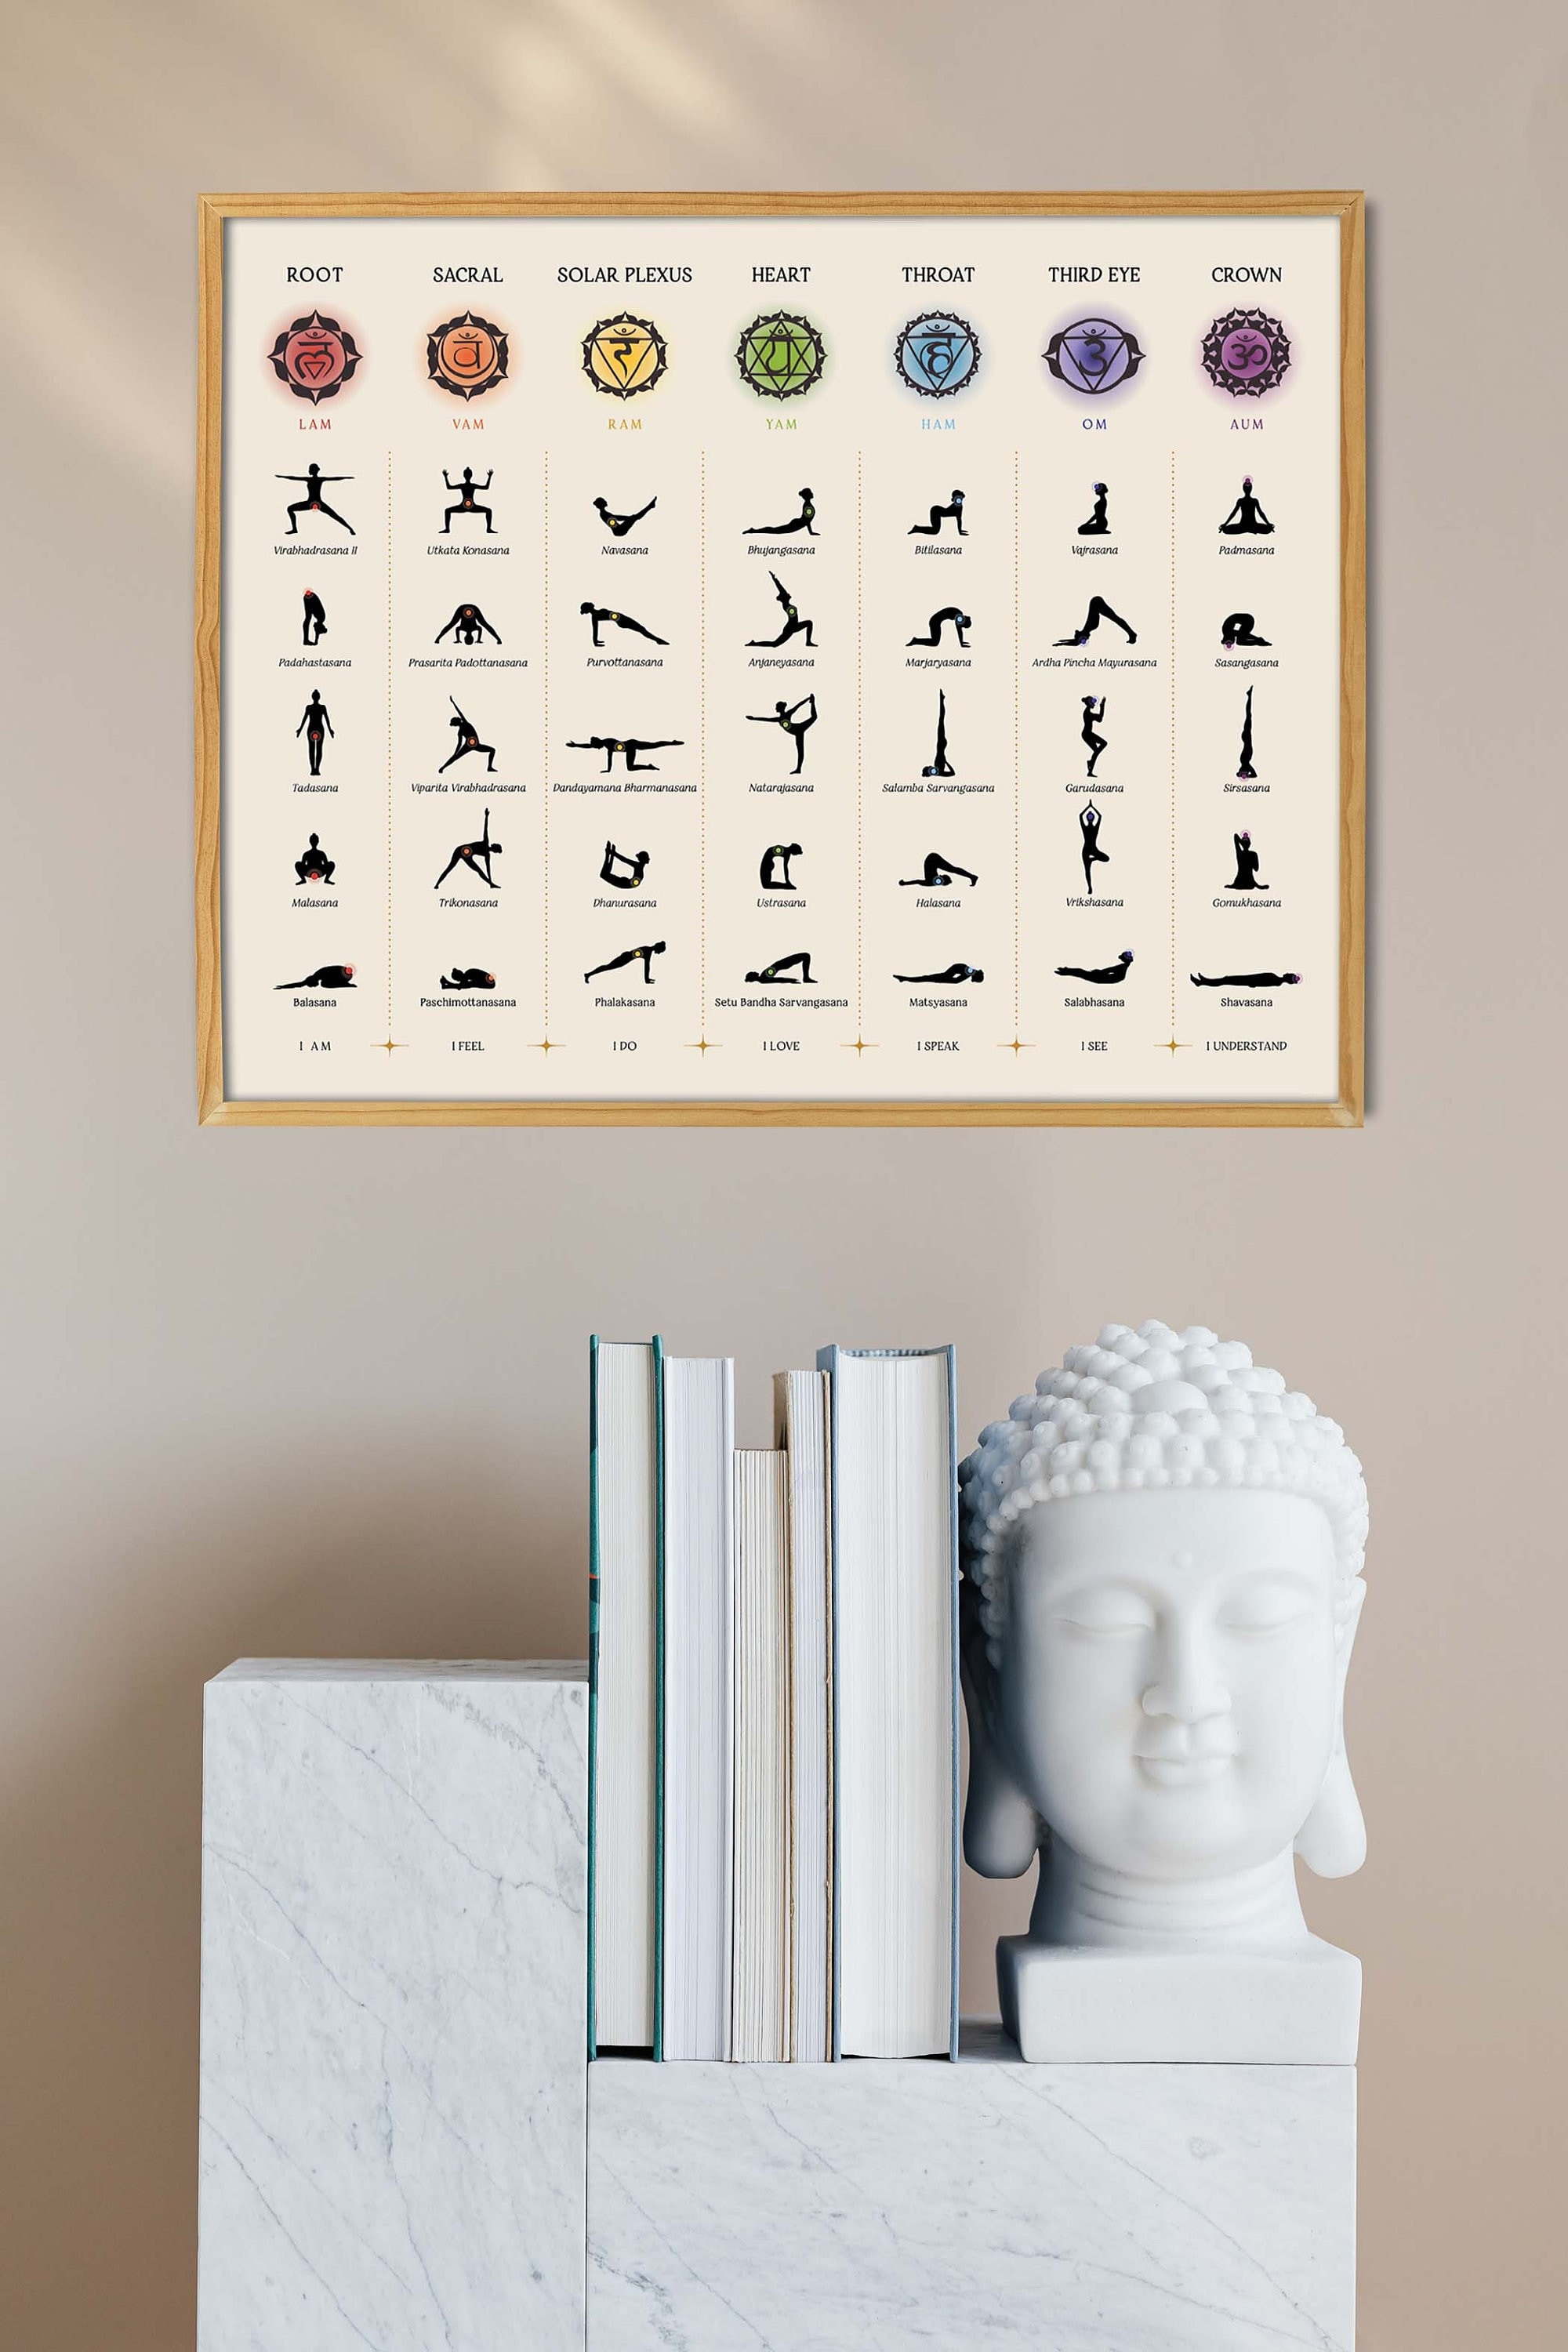 ROOT SACRAL SOLAR PLEXUS HEART THROAT THIRD EYE CROWN
लं वं रं यं हं ॐ ॐ
LAM VAM RAM YAM HAM OM AUM
Virabhadrasana II Utkata Konasana Navasana Bhujangasana Bitilasana Vajrasana Padmasana
Padahastasana Prasarita Padottanasana Purvottanasana Anjaneyasana Marjaryasana Ardha Pincha Mayurasana Sasangasana
Tadasana Viparita Virabhadrasana Dandayamana Bharmanasana Natarajasana Salamba Sarvangasana Garudasana Sirsasana
Malasana Trikonasana Dhanurasana Ustrasana Halasana Vrikshasana Gomukhasana
Balasana Paschimottanasana Phalakasana Setu Bandha Sarvangasana Matsyasana Salabhasana Shavasana
I AM I FEEL I DO I LOVE I SPEAK I SEE I UNDERSTAND